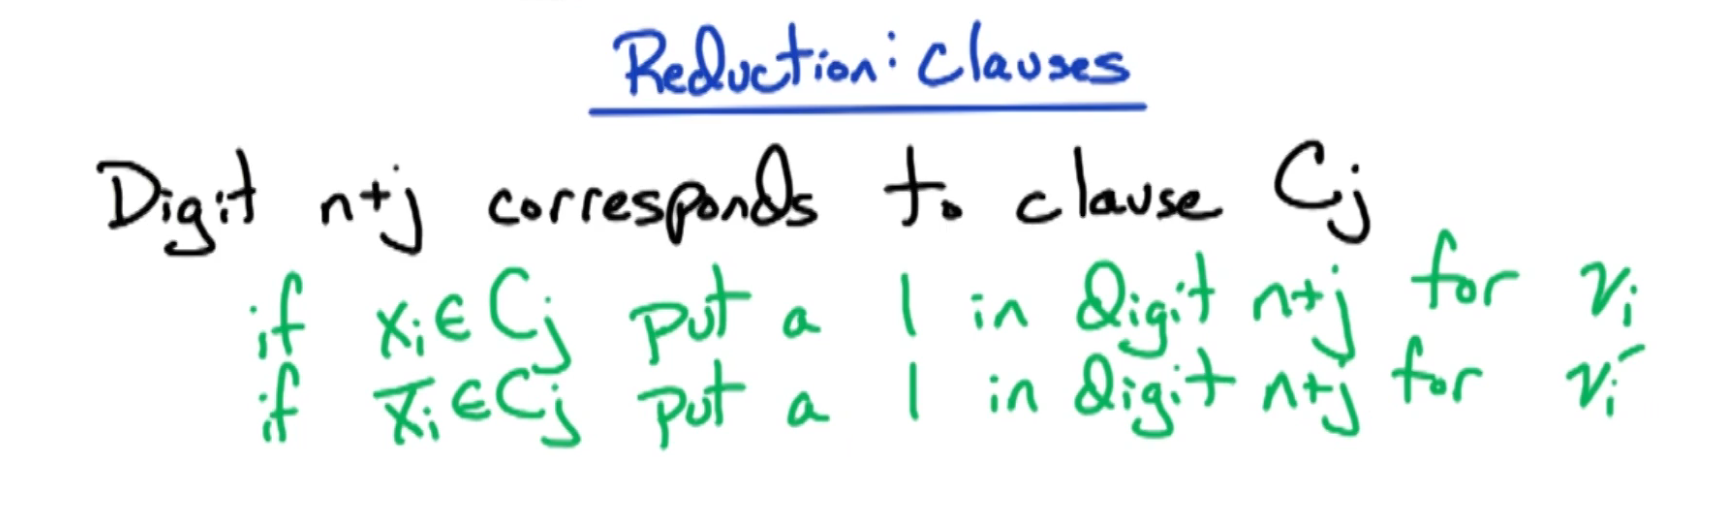 Reduction: Clauses
Digit n+j corresponds to clause Cj
if xᵢ∈Cj put a 1 in digit n+j for vᵢ
if x̅ᵢ∈Cj put a 1 in digit n+j for vᵢ′